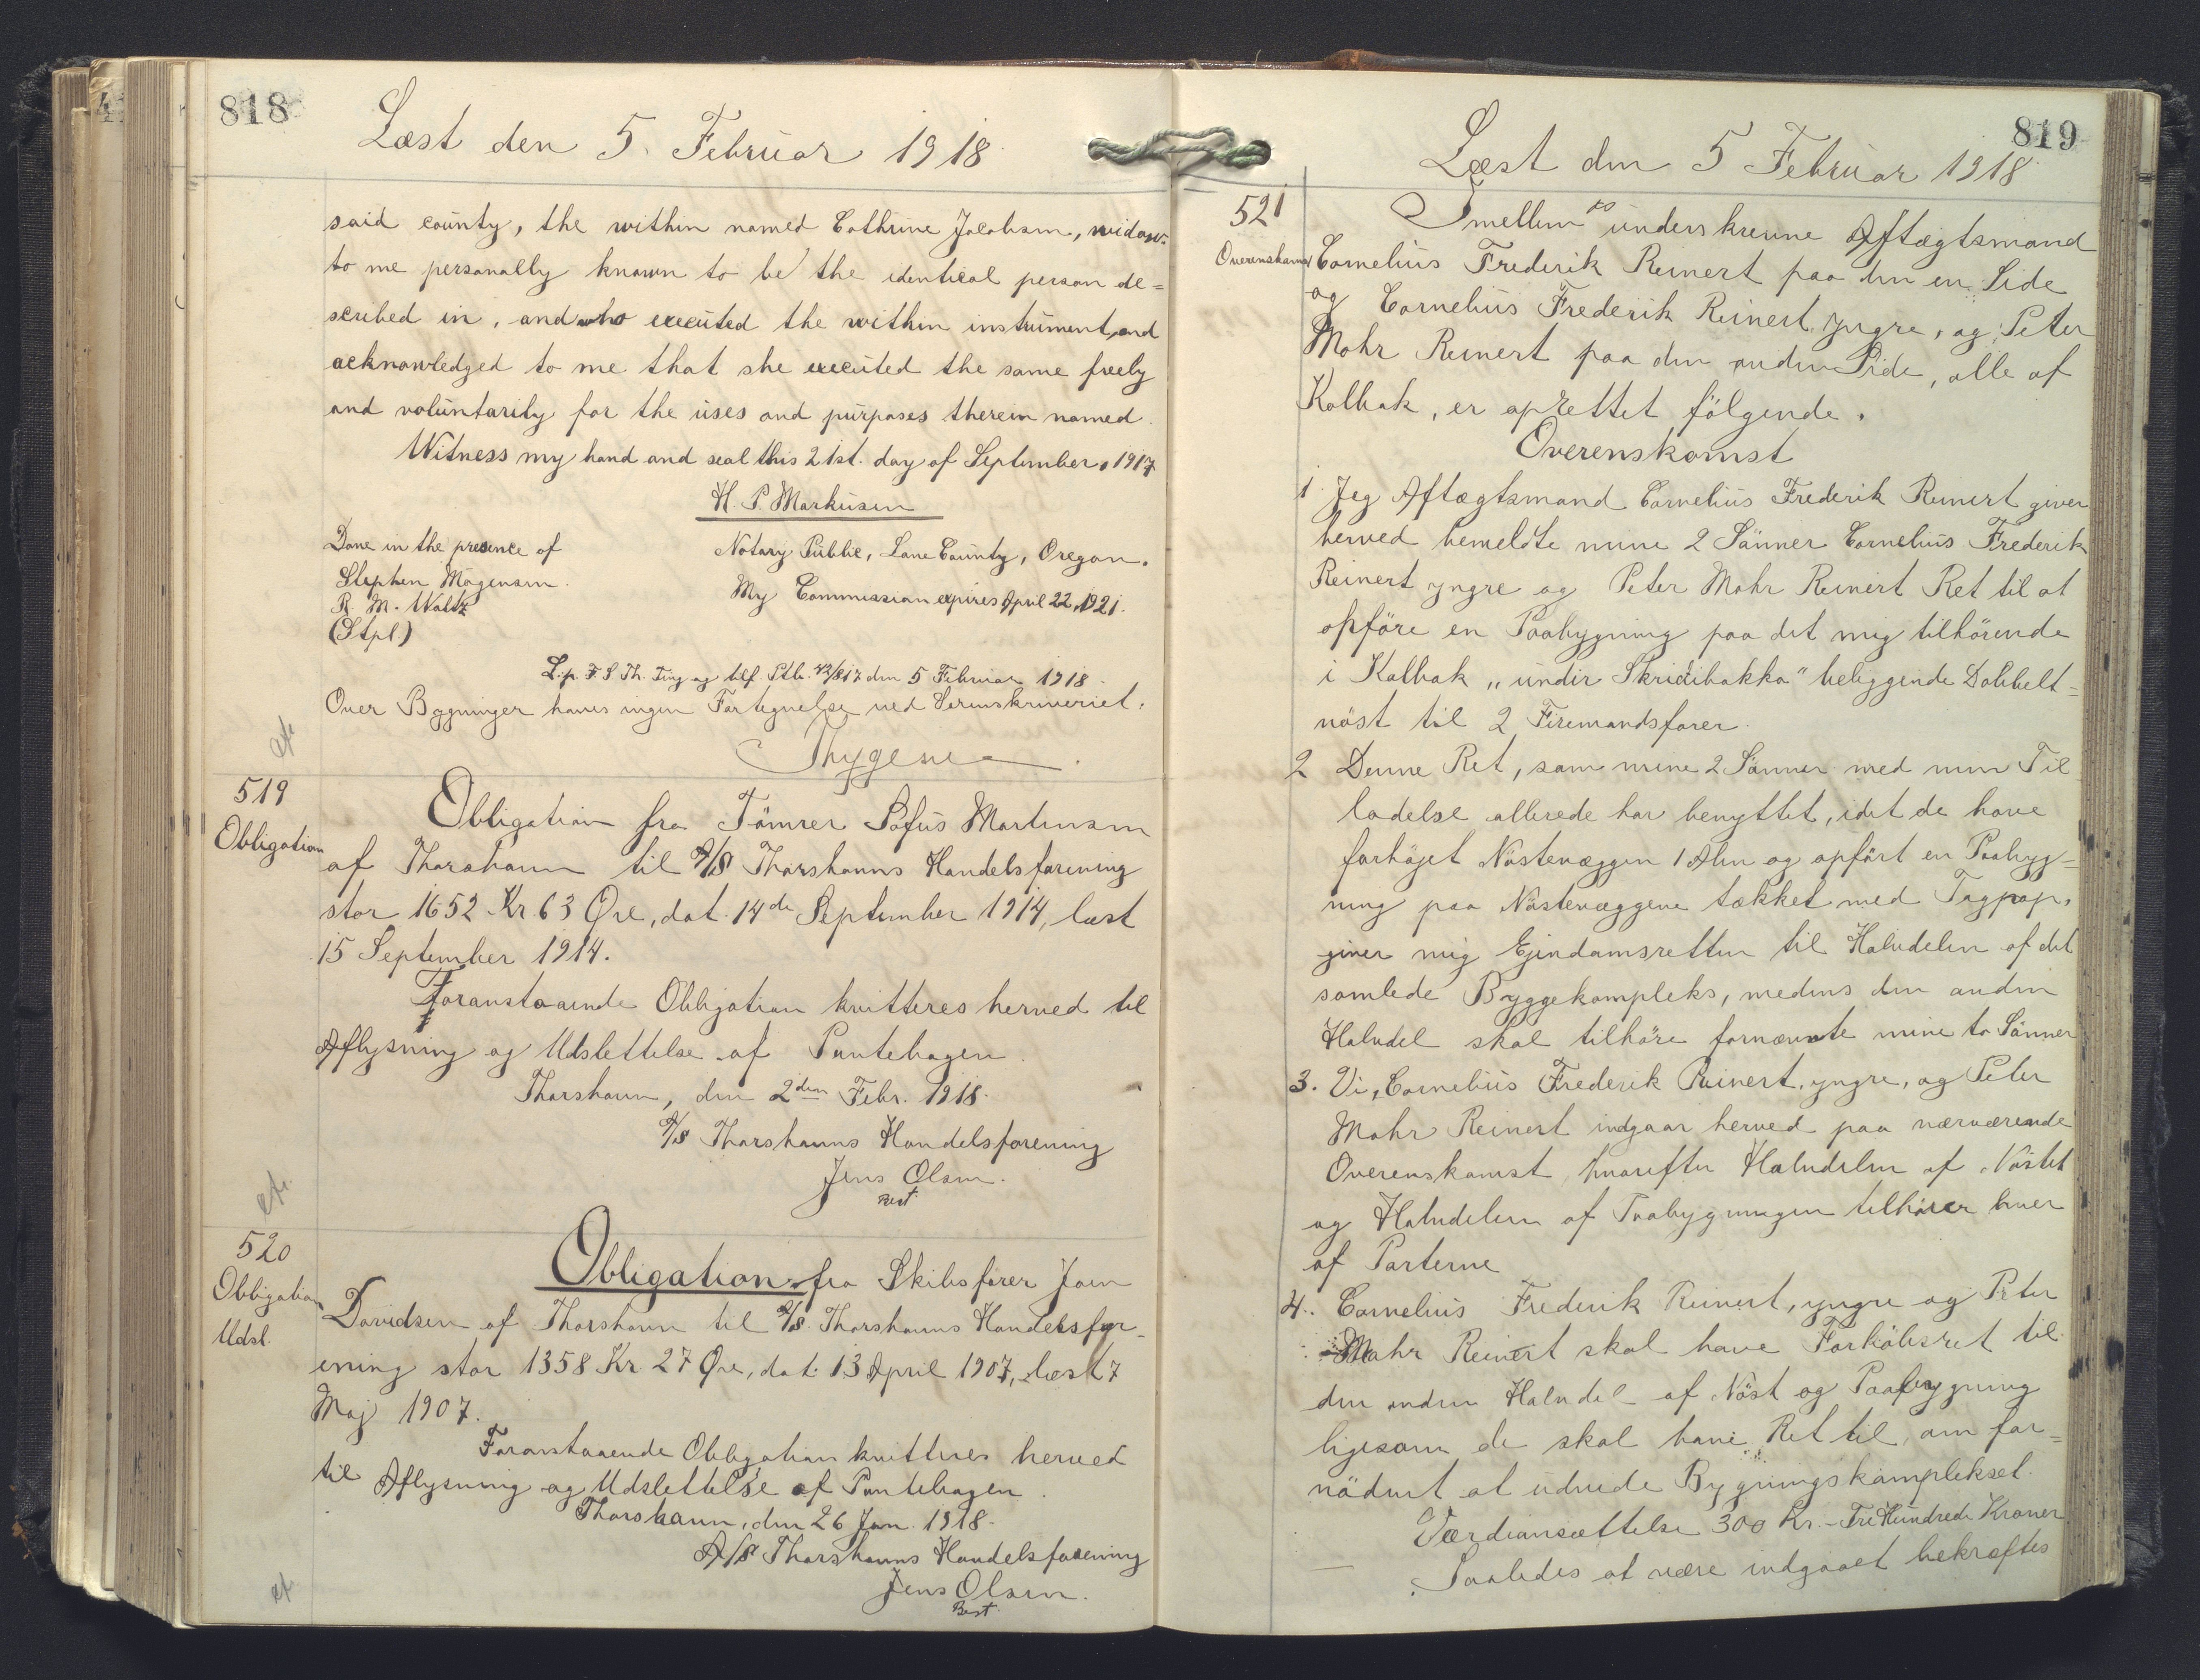 818
Læst den 5. Februar 1918
said county, the within named Cathrine Jacobsen, widow.
to me personally known to be the identical person de=
scribed in, and who executed the within instrument, and
acknowledged to me that she executed the same freely
and voluntarily for the uses and purposes therein named.
Witness my hand and seal this 21st. day of September, 1917
H. P. Markusen
Done in the presence of
Notary Public, Lane County, Oregon.
Stephen Mogensen.
My Commission expires April 22, 1921.
R. M. Waltz
(Stpl)
L. p. F. S Th. Ting og tilf. Ptb. den 5 Februar 1918.
Over Bygninger haves ingen Fortegnelse ved Sorenskriveriet.
Thygesen
519
Obligation
Obligation fra Tömrer Sofus Martensen
af Thorshavn til A/S Thorshavns Handelsforening
stor 1652 Kr. 63 Øre, dat. 14de September 1914, læst
15 September 1914.
Foranstaaende Obligation kvitteres herved til
Aflysning og Udslettelse af Pantebogen.
Thorshavn, den 2den Febr. 1918.
A/S Thorshavns Handelsforening
Jens Olsen.
Best
520
Obligation
Udsl.
Obligation fra Skibsfører Joen
Davidsen af Thorshavn til A/S. Thorshavns Handelsfor-
ening stor 1358 Kr 27 Øre, dat. 13 April 1907, læst 7
Maj 1907.
Foranstaaende Obligation kvitteres herved
til Aflysning og Udslettelse af Pantebogen.
Thorshavn, den 26 Jan. 1918.
A/S Thorshavns Handelsforening
Jens Olsen.
Best.
819
Læst den 5 Februar 1918
521
Overenskomst
Imellem os underskrevne Aftægtsmand
Cornelius Frederik Reinert paa den en Side
og Cornelius Frederik Reinert yngre, og Peter
Mohr Reinert paa den anden Side, alle af
Kolbak, er oprettet fölgende.
Overenskomst
1. Jeg Aftægtsmand Cornelius Frederik Reinert giver
herved bemeldte mine 2 Sönner Cornelius Frederik
Reinert yngre og Peter Mohr Reinert Ret til at
opföre en Paabygning paa det mig tilhörende
i Kolbak „undir Skridibakka" beliggende Dobbelt=
nöst til 2 Firemandsfarer.
2 Denne Ret, som mine 2 Sönner med min Til
ladelse allerede har benyttet, idet de have
forhöjet Nöstevæggen 1 Alen og opfört en Paabyg=
ning paa Nöstevæggene tækket med Tagpap,
giver mig Ejendomsretten til Halvdelen af det
samlede Byggekompleks, medens den anden
Halvdel skal tilhöre fornævnte mine to Sönner
3. Vi, Cornelius Frederik Reinert, yngre, og Peter
Mohr Reinert indgaar herved paa nærværende
Overenskomst, hvorefter Halvdelen af Nöstet
og Halvdelen af Paabygningen tilhörer hver
af Parterne
4. Cornelius Frederik Reinert, yngre og Peter
Mohr Reinert skal have Forköbsret til
den anden Halvdel af Nöst og Paabygning
ligesom de skal have Ret til, om for=
nödent at udvide Bygningskomplekset.
Værdiansættelse 300 Kr. – Tre Hundrede Kroner
Saaledes at være indgaaet bekræftes